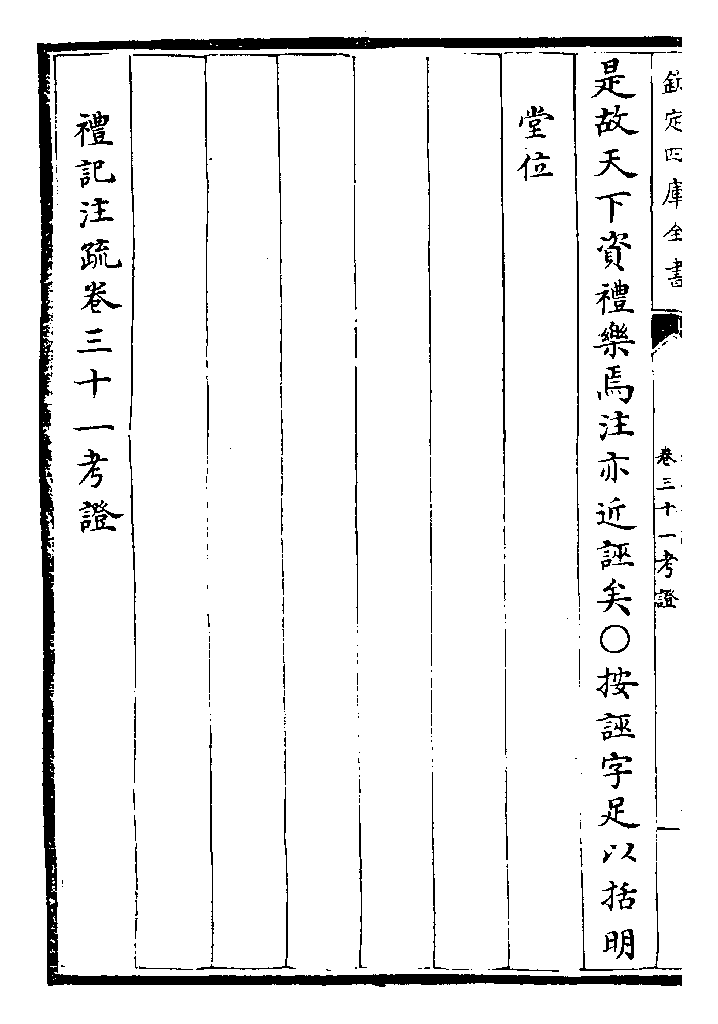 欽定四庫全書
卷三十一考證
是故天下資禮樂焉注亦近誣矣○按誣字足以括明
堂位
禮記注疏卷三十一考證